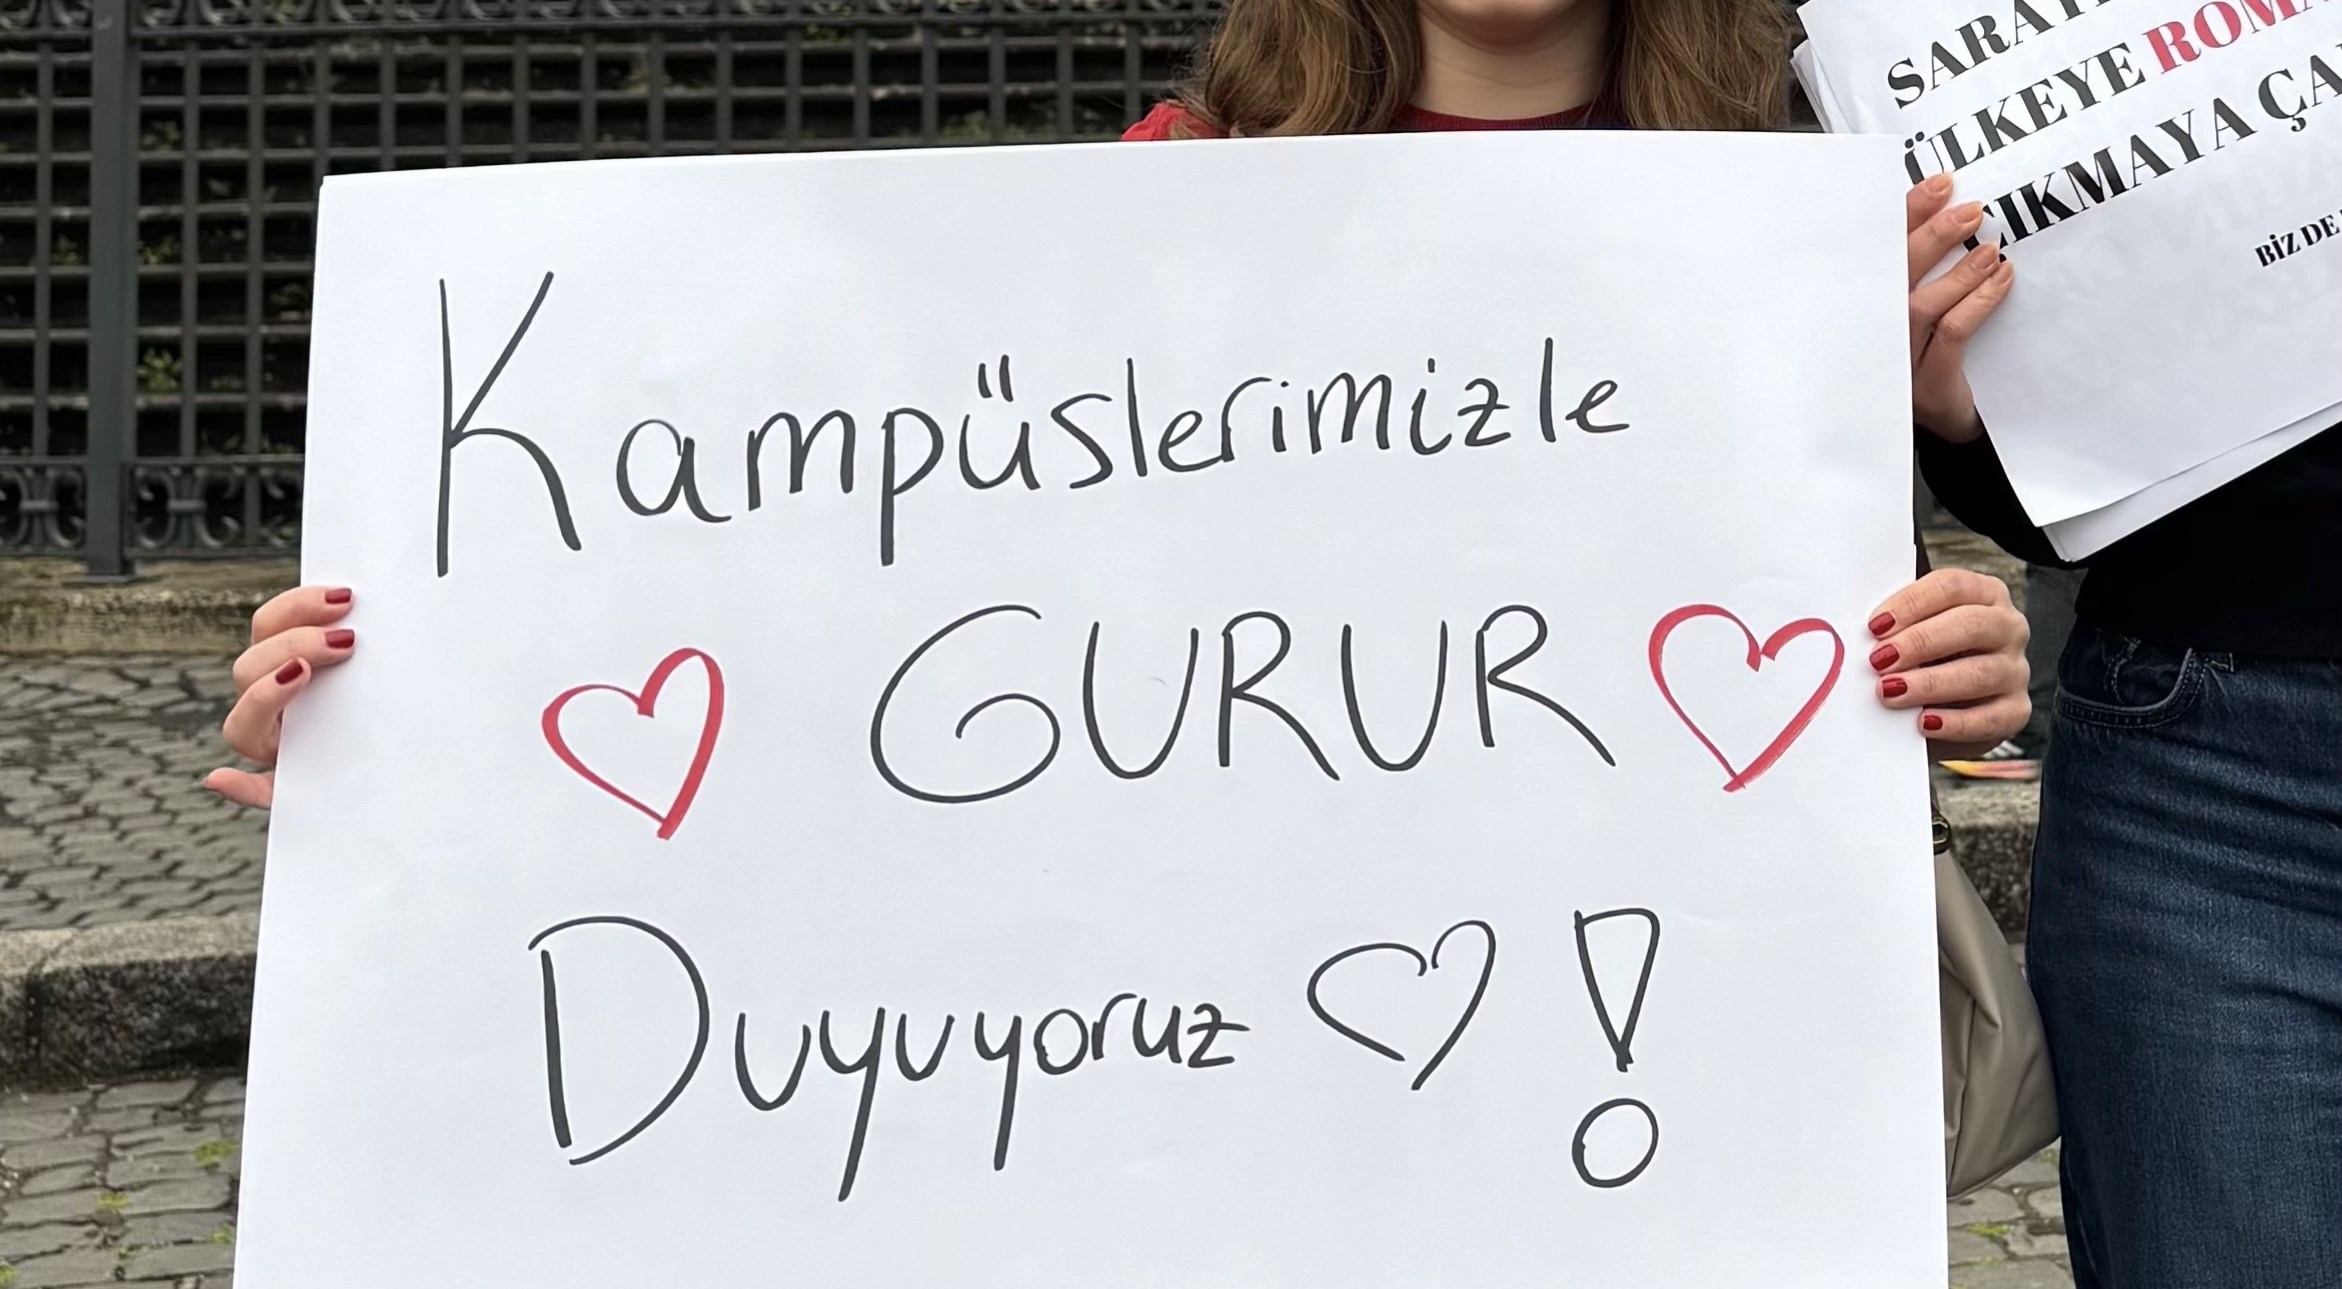 Kampüslerimizle
♡ GURUR ♡
Duyuyoruz ♡ !
ÜLKEYE
ÇIKMAYA
BİZ DE